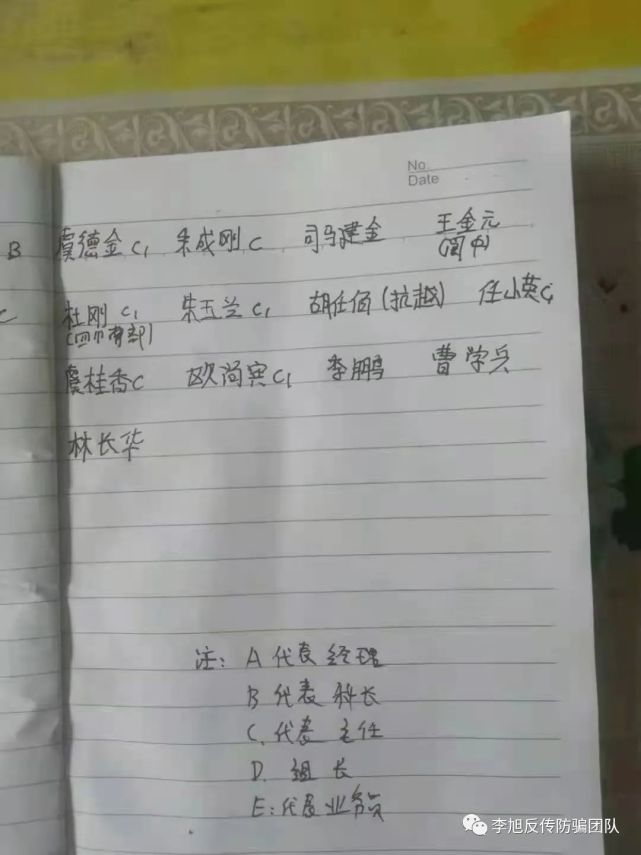 No.
Date
B 虞德金 C1 朱成刚 C 司马建金 王金元
(阆中)
C 杜刚 C1 朱玉兰 C1 胡仕佰(抗越) 任小英 C1
(四川南部)
虞桂香 C 欧尚宾 C1 李鹏 曹学兵
林长华
注: A 代表 经理
B 代表 科长
C. 代表 主任
D. 组长
E: 代表业务员
李旭反传防骗团队